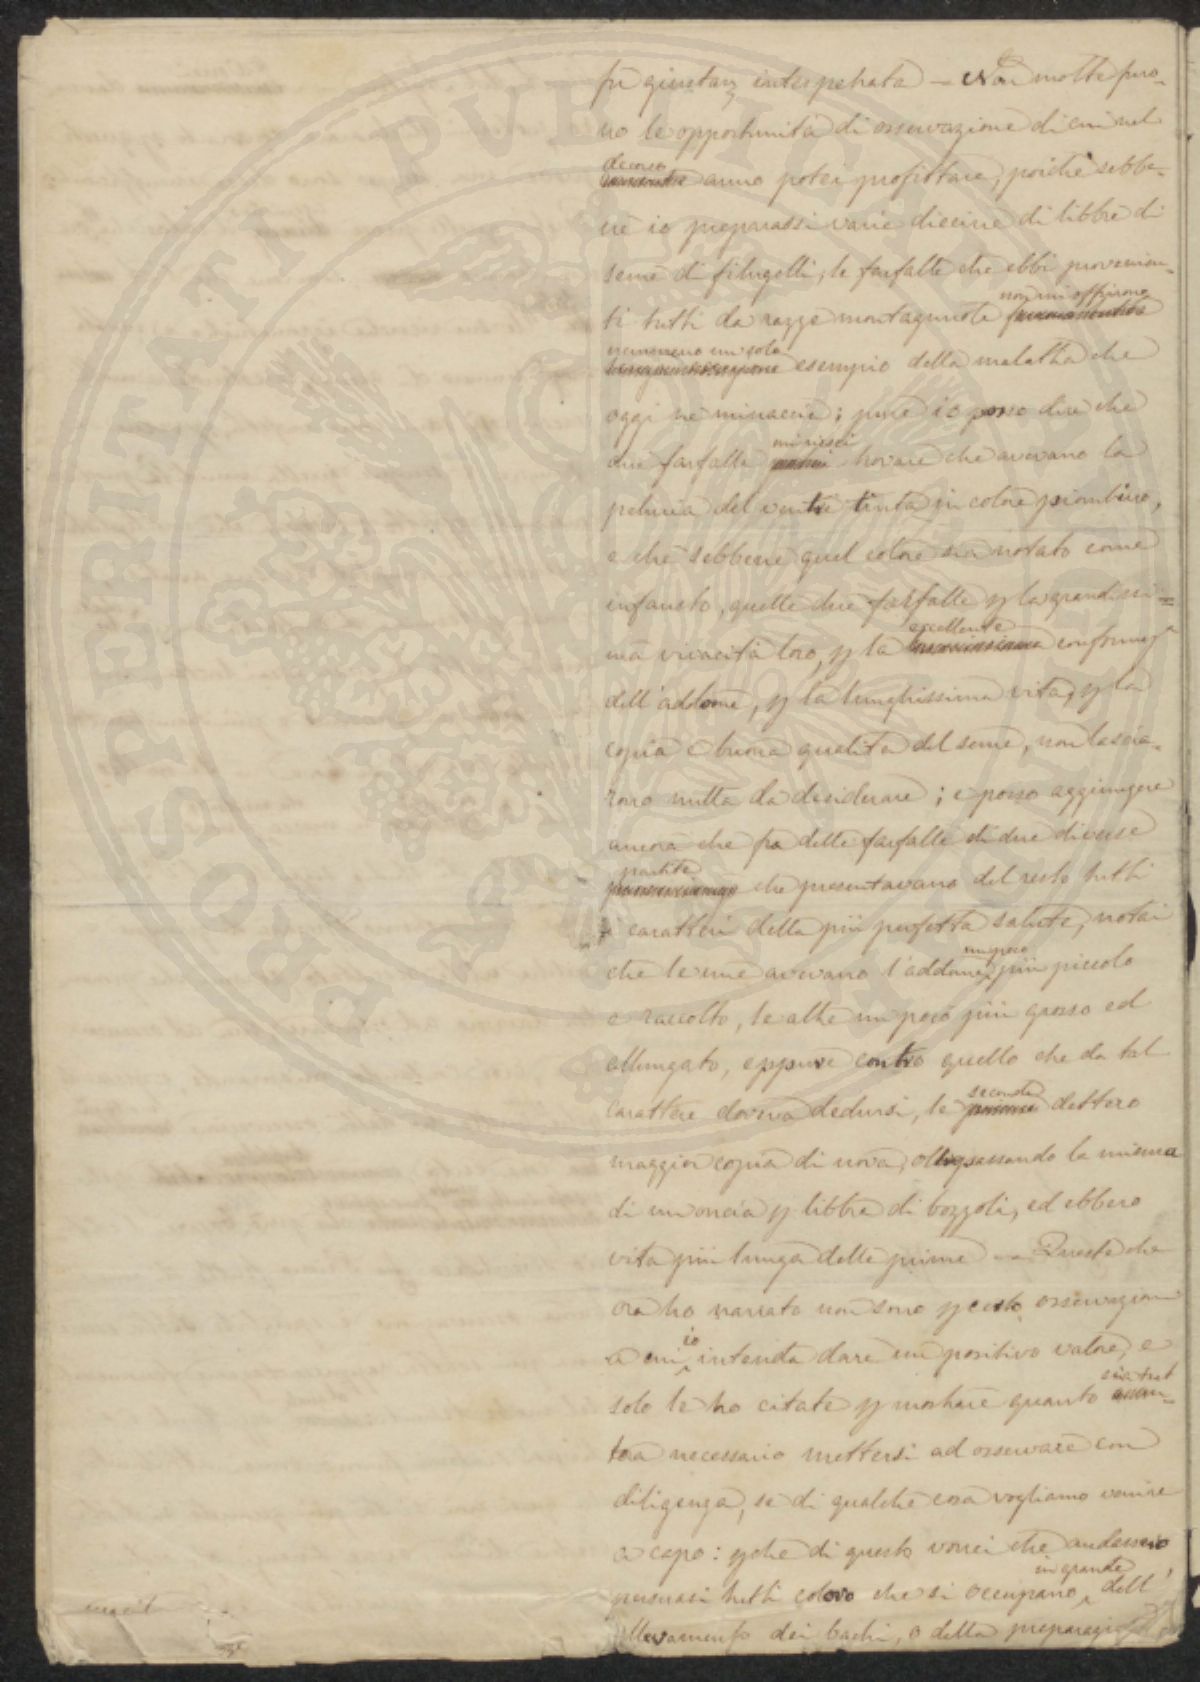 fu giustam interpetrata — Non molte furo-
no le opportunità di osservazione di cui nel
decorso anno potei profittare, poichè sebbe-
ne io preparassi varie diecine di libbre di
seme di filugelli, le farfalle che ebbi provenien-
ti tutti da razze montagnuole non mi offrirono
nemmeno un solo esempio della malattia che
oggi ne minaccia; pure io posso dire che
due farfalle mi riescì trovare che avevano la
peluria del ventre tinta in colore piombino,
e che sebbene quel colore sia notato come
infausto, quelle due farfalle p la grandissi=
ma vivacità loro, p la eccellente conformaz
dell'addome, p la lunghissima vita, p la
copia e buona qualità del seme, non lascia-
rono nulla da desiderare; e posso aggiungere
ancora che fra delle farfalle di due diverse
partite che presentavano del resto tutti
i caratteri della più perfetta salute, notai
che le une avevano l'addome un poco più piccolo
e raccolto, le altre un poco più grosso ed
allungato, eppure contro quello che da tal
carattere doveva dedursi, le seconde dettero
maggior copia di uova, oltrepassando la misura
di un oncia p libbra di bozzoli, ed ebbero
vita più lunga delle prime — Queste che
ora ho narrato non sono p certo osservazioni
a cui io intenda dare un positivo valore, e
solo le ho citate p mostrare quanto sia tut
tora necessario mettersi ad osservare con
diligenza, se di qualche cosa vogliamo venire
a capo: pche di questo vorrei che andassero
persuasi tutti coloro che si occupano in grande, dell'
allevamento dei bachi, o della preparazio
PROSPERITATI PUBLICAE